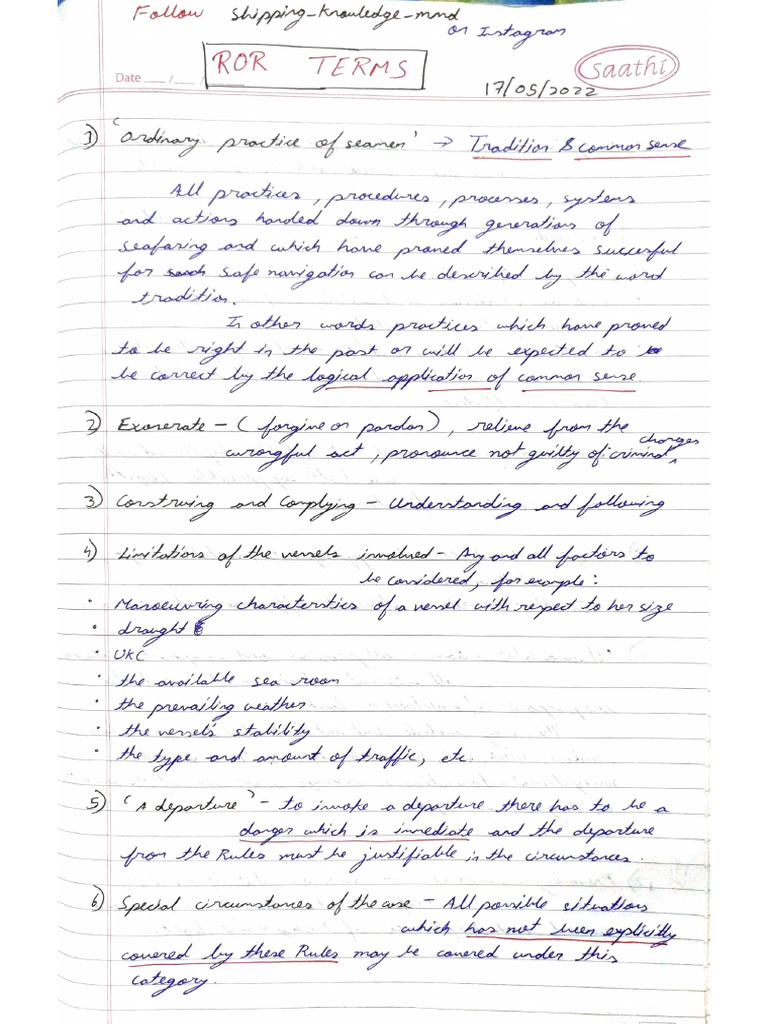 Follow shipping_knowledge_mmd
on Instagram
ROR TERMS
saathi
Date ___/___/___
17/05/2022
1) 'Ordinary practice of seamen' → Tradition & common sense
All practices, procedures, processes, systems
and actions handed down through generations of
seafaring and which have proved themselves succesful
for such safe navigation can be described by the word
tradition.
In other words practices which have proved
to be right in the past or will be expected to
be correct by the logical application of common sense
2) Exonerate - (forgive or pardon), relieve from the
wrongful act, pronounce not guilty of criminal charges
3) Construing and Complying - Understanding and following
4) Limitations of the vessels involved - Any and all factors to
be considered, for example:
• Manoeuvring characterstics of a vessel with respect to her size
• draught
• UKC
• the available sea room
• the prevailing weather
• the vessel's stability
• the type and amount of traffic, etc.
5) 'A departure' - to invoke a departure there has to be a
danger which is immediate and the departure
from the Rules must be justifiable in the circumstances.
6) Special circumstances of the case - All possible situations
which has not been explicitly
covered by these Rules may be covered under this
category.